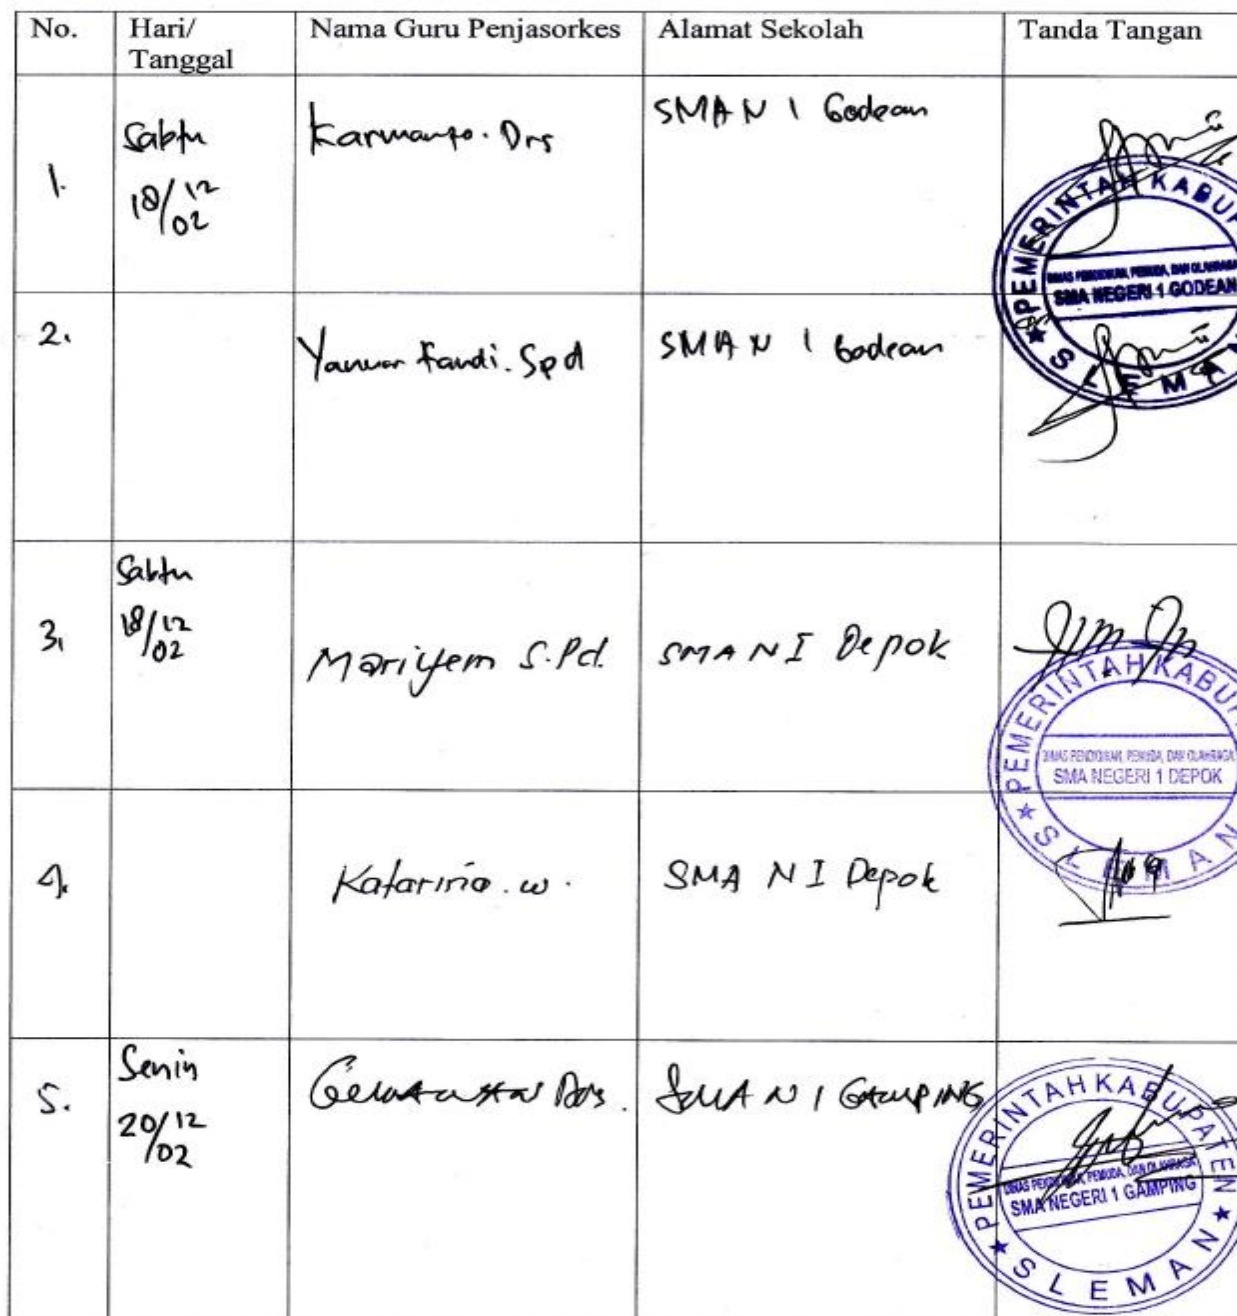 No. Hari/ Nama Guru Penjasorkes Alamat Sekolah Tanda Tangan
Tanggal
1. Sabtu Karmanto. Drs SMA N 1 Godean
18/12
02
PEMERINTAH KABUP
DINAS PENDIDIKAN, PEMUDA, DAN OLAHRAGA
SMA NEGERI 1 GODEAN
SLEMAN
2. Yanuar Fandi. Spd SMA N 1 Godean
3. Sabtu Mariyem S.Pd. SMA N I Depok
18/12
02
PEMERINTAH KABUP
DINAS PENDIDIKAN, PEMUDA, DAN OLAHRAGA
SMA NEGERI 1 DEPOK
SLEMAN
4. Katarina. w. SMA N I Depok
5. Senin Drs. SMA N 1 GAMPING
20/12
02
PEMERINTAH KABUPATEN
DINAS PENDIDIKAN, PEMUDA, DAN OLAHRAGA
SMA NEGERI 1 GAMPING
SLEMAN